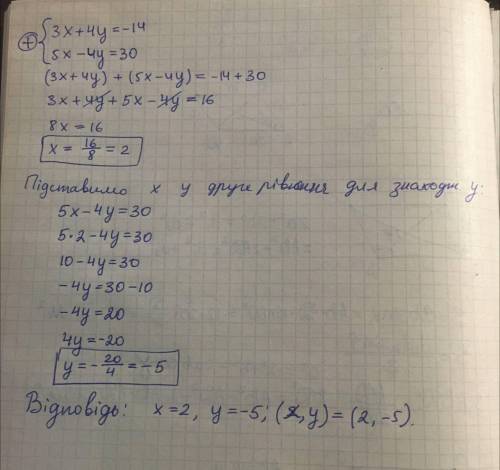 ⊕ { 3x+4y=-14
5x-4y=30
(3x+4y)+(5x-4y)=-14+30
3x+4y+5x-4y=16
8x=16
x=16/8=2
Підставимо x у друге рівняння для знаходж y:
5x-4y=30
5*2-4y=30
10-4y=30
-4y=30-10
-4y=20
4y=-20
y=-20/4=-5
Відповідь: x=2, y=-5; (x,y)=(2,-5).